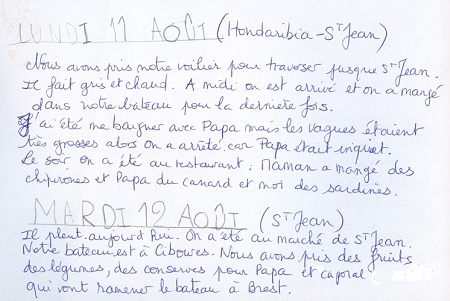 LUNDI 11 AOÛT (Hondaribia - St Jean)
Nous avons pris notre voilier pour traverser jusque St Jean.
Il fait gris et chaud. A midi on est arrivé et on a mangé
dans notre bateau pour la dernière fois.
J'ai été me baigner avec Papa mais les vagues étaient
très grosses alors on a arrêté car Papa était inquiet.
Le soir on a été au restaurant : Maman a mangé des
chipirones et Papa du canard et moi des sardines.
MARDI 12 AOÛT (St Jean)
Il pleut aujourd'hui. On a été au marché de St Jean.
Notre bateau est à Cibowes. Nous avons pris des fruits
des légumes, des conserves pour Papa et caporal
qui vont ramener le bateau à Brest.